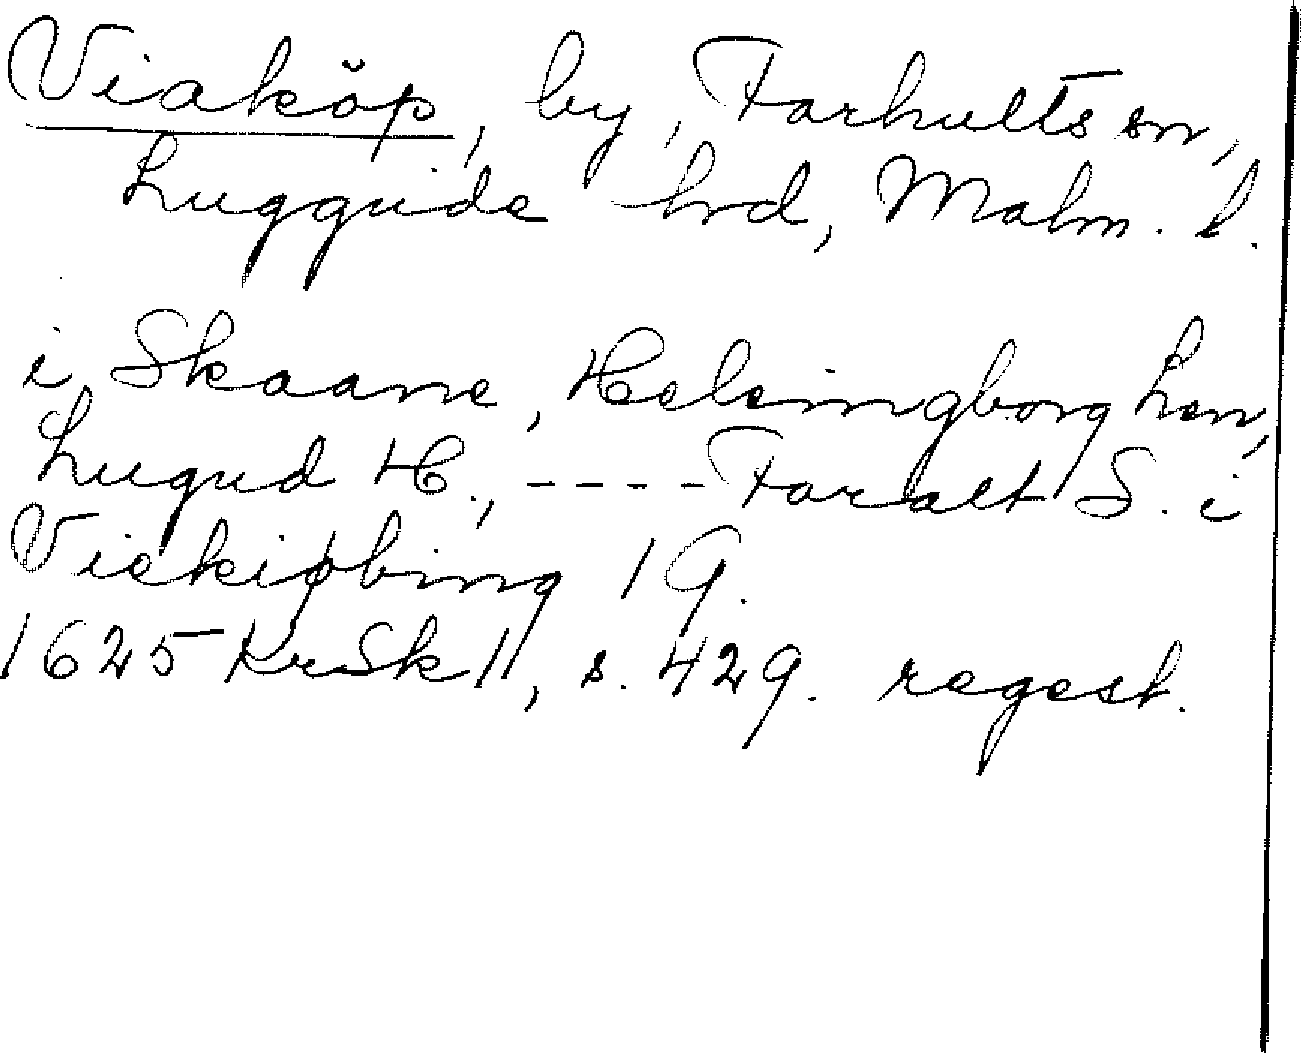 Viaköp, by, Farhults sn,
Luggude hrd, Malm. l.
i Skaane, Helsingborg Len,
Lugud H., ---- Faralt S. i
Viekiøbing 1 G.
1625 KrSk II, s. 429. regest.